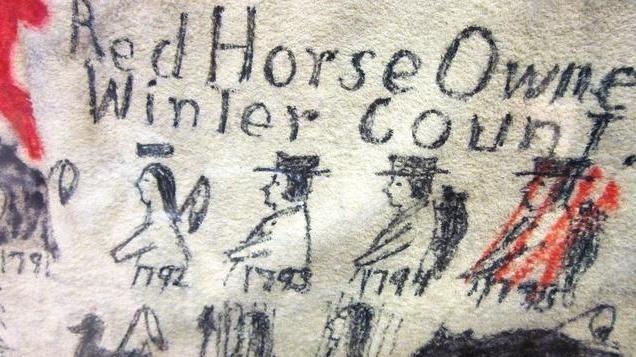 Red Horse Owne
Winter Count.
1791 1792 1793 1794 1795